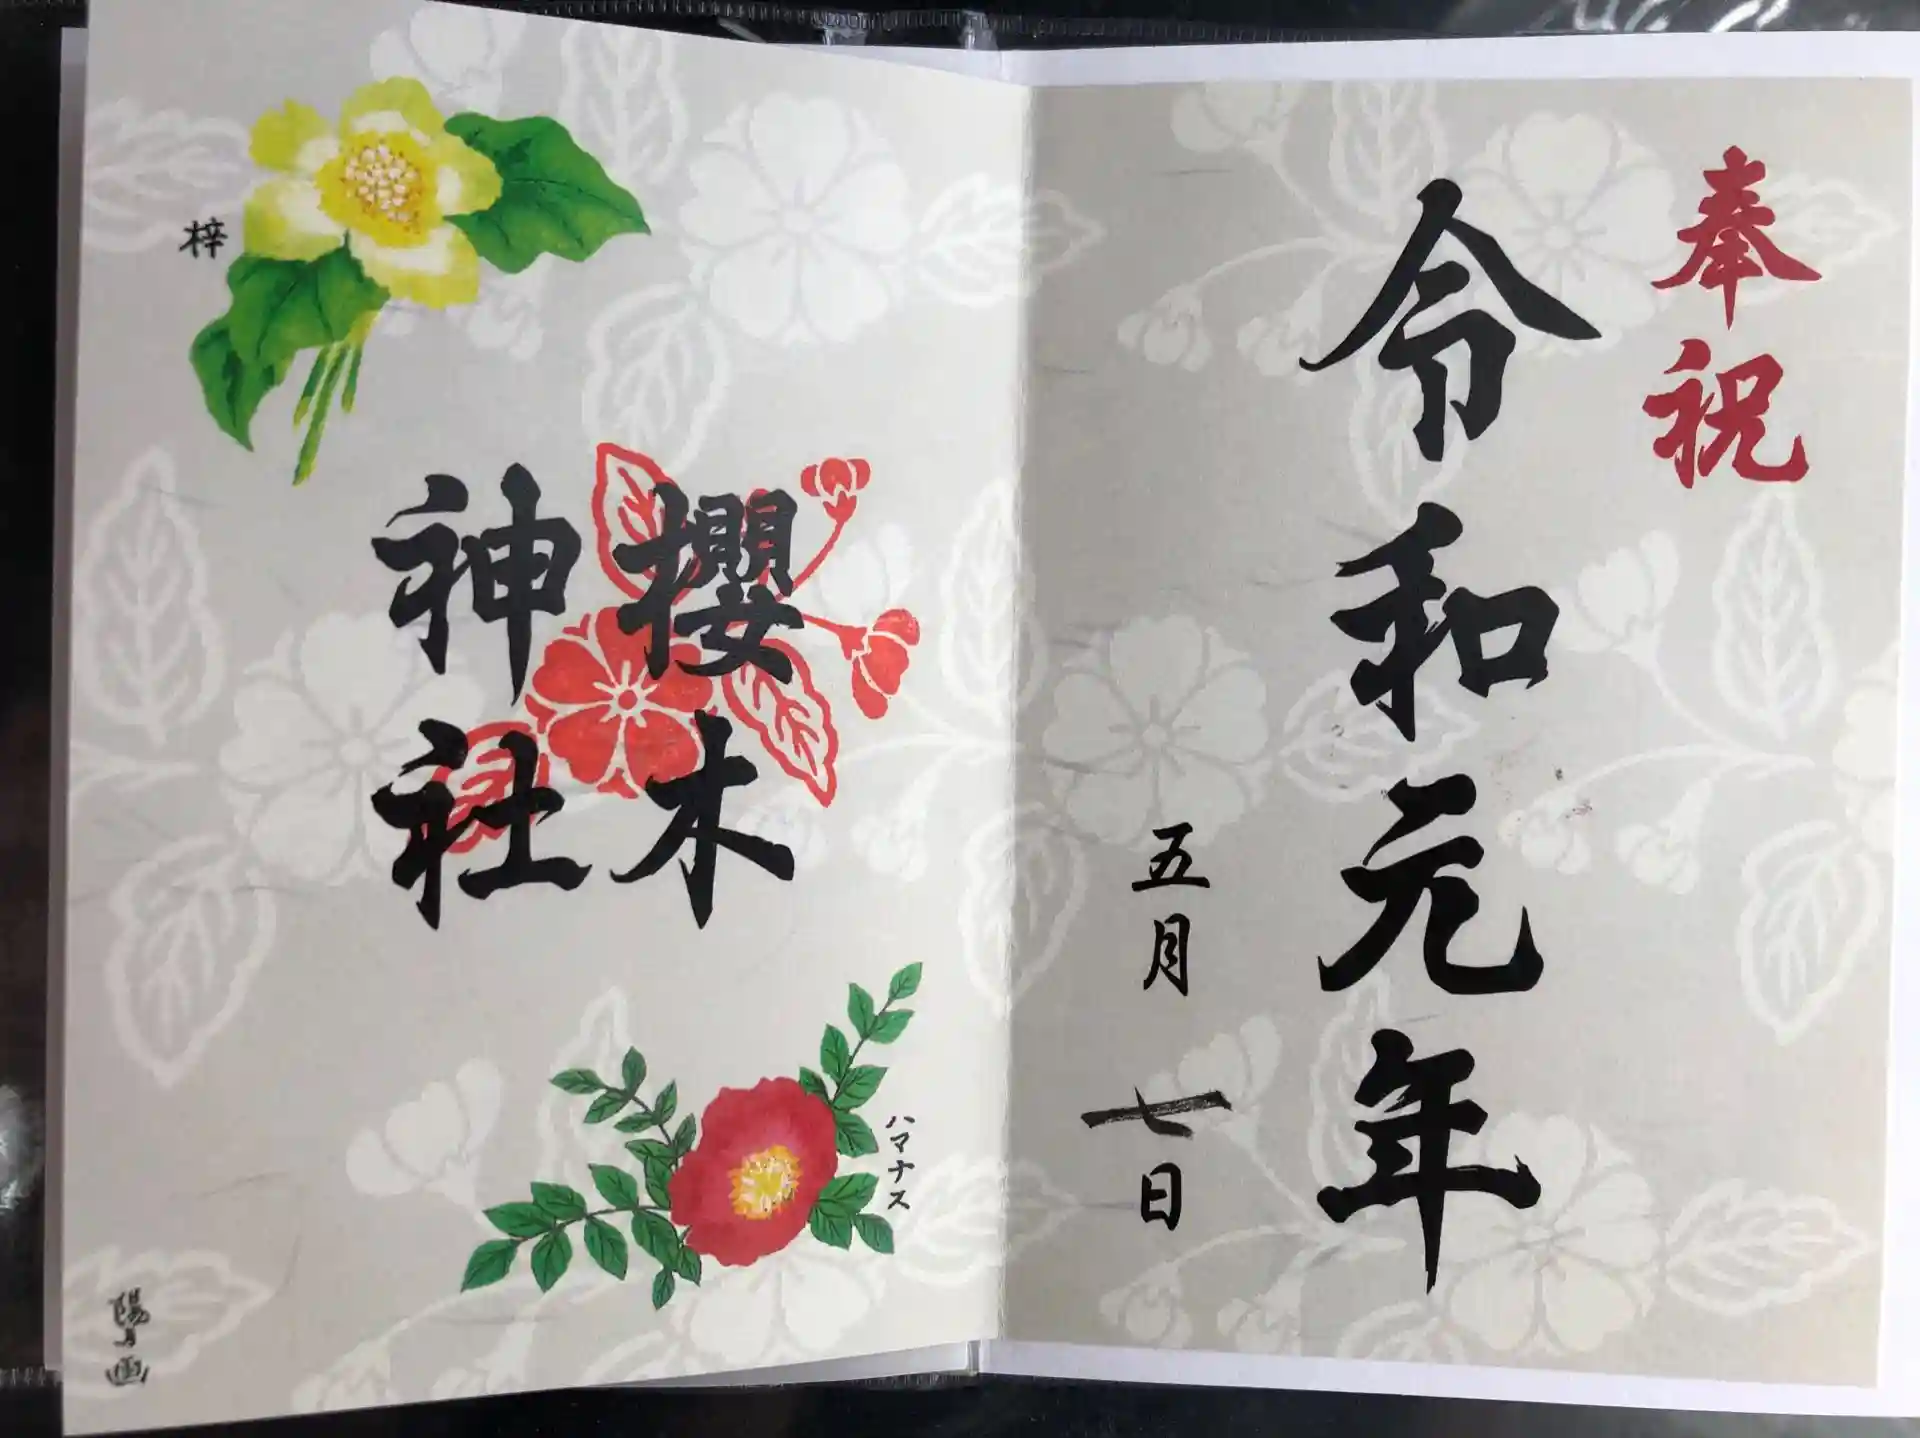 奉祝
令和元年
五月七日
櫻木
神社
梓
ハマナス
陽月画